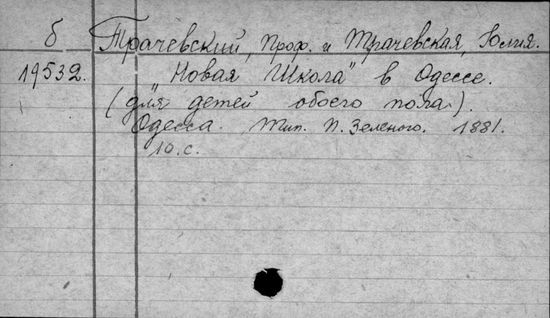 б Трачевский, Проф. и Трачевская, Юлия.
19532. "Новая Школа" в Одессе.
(для детей обоего пола).
Одесса. Тип. П. Зеленого. 1881.
10.с.